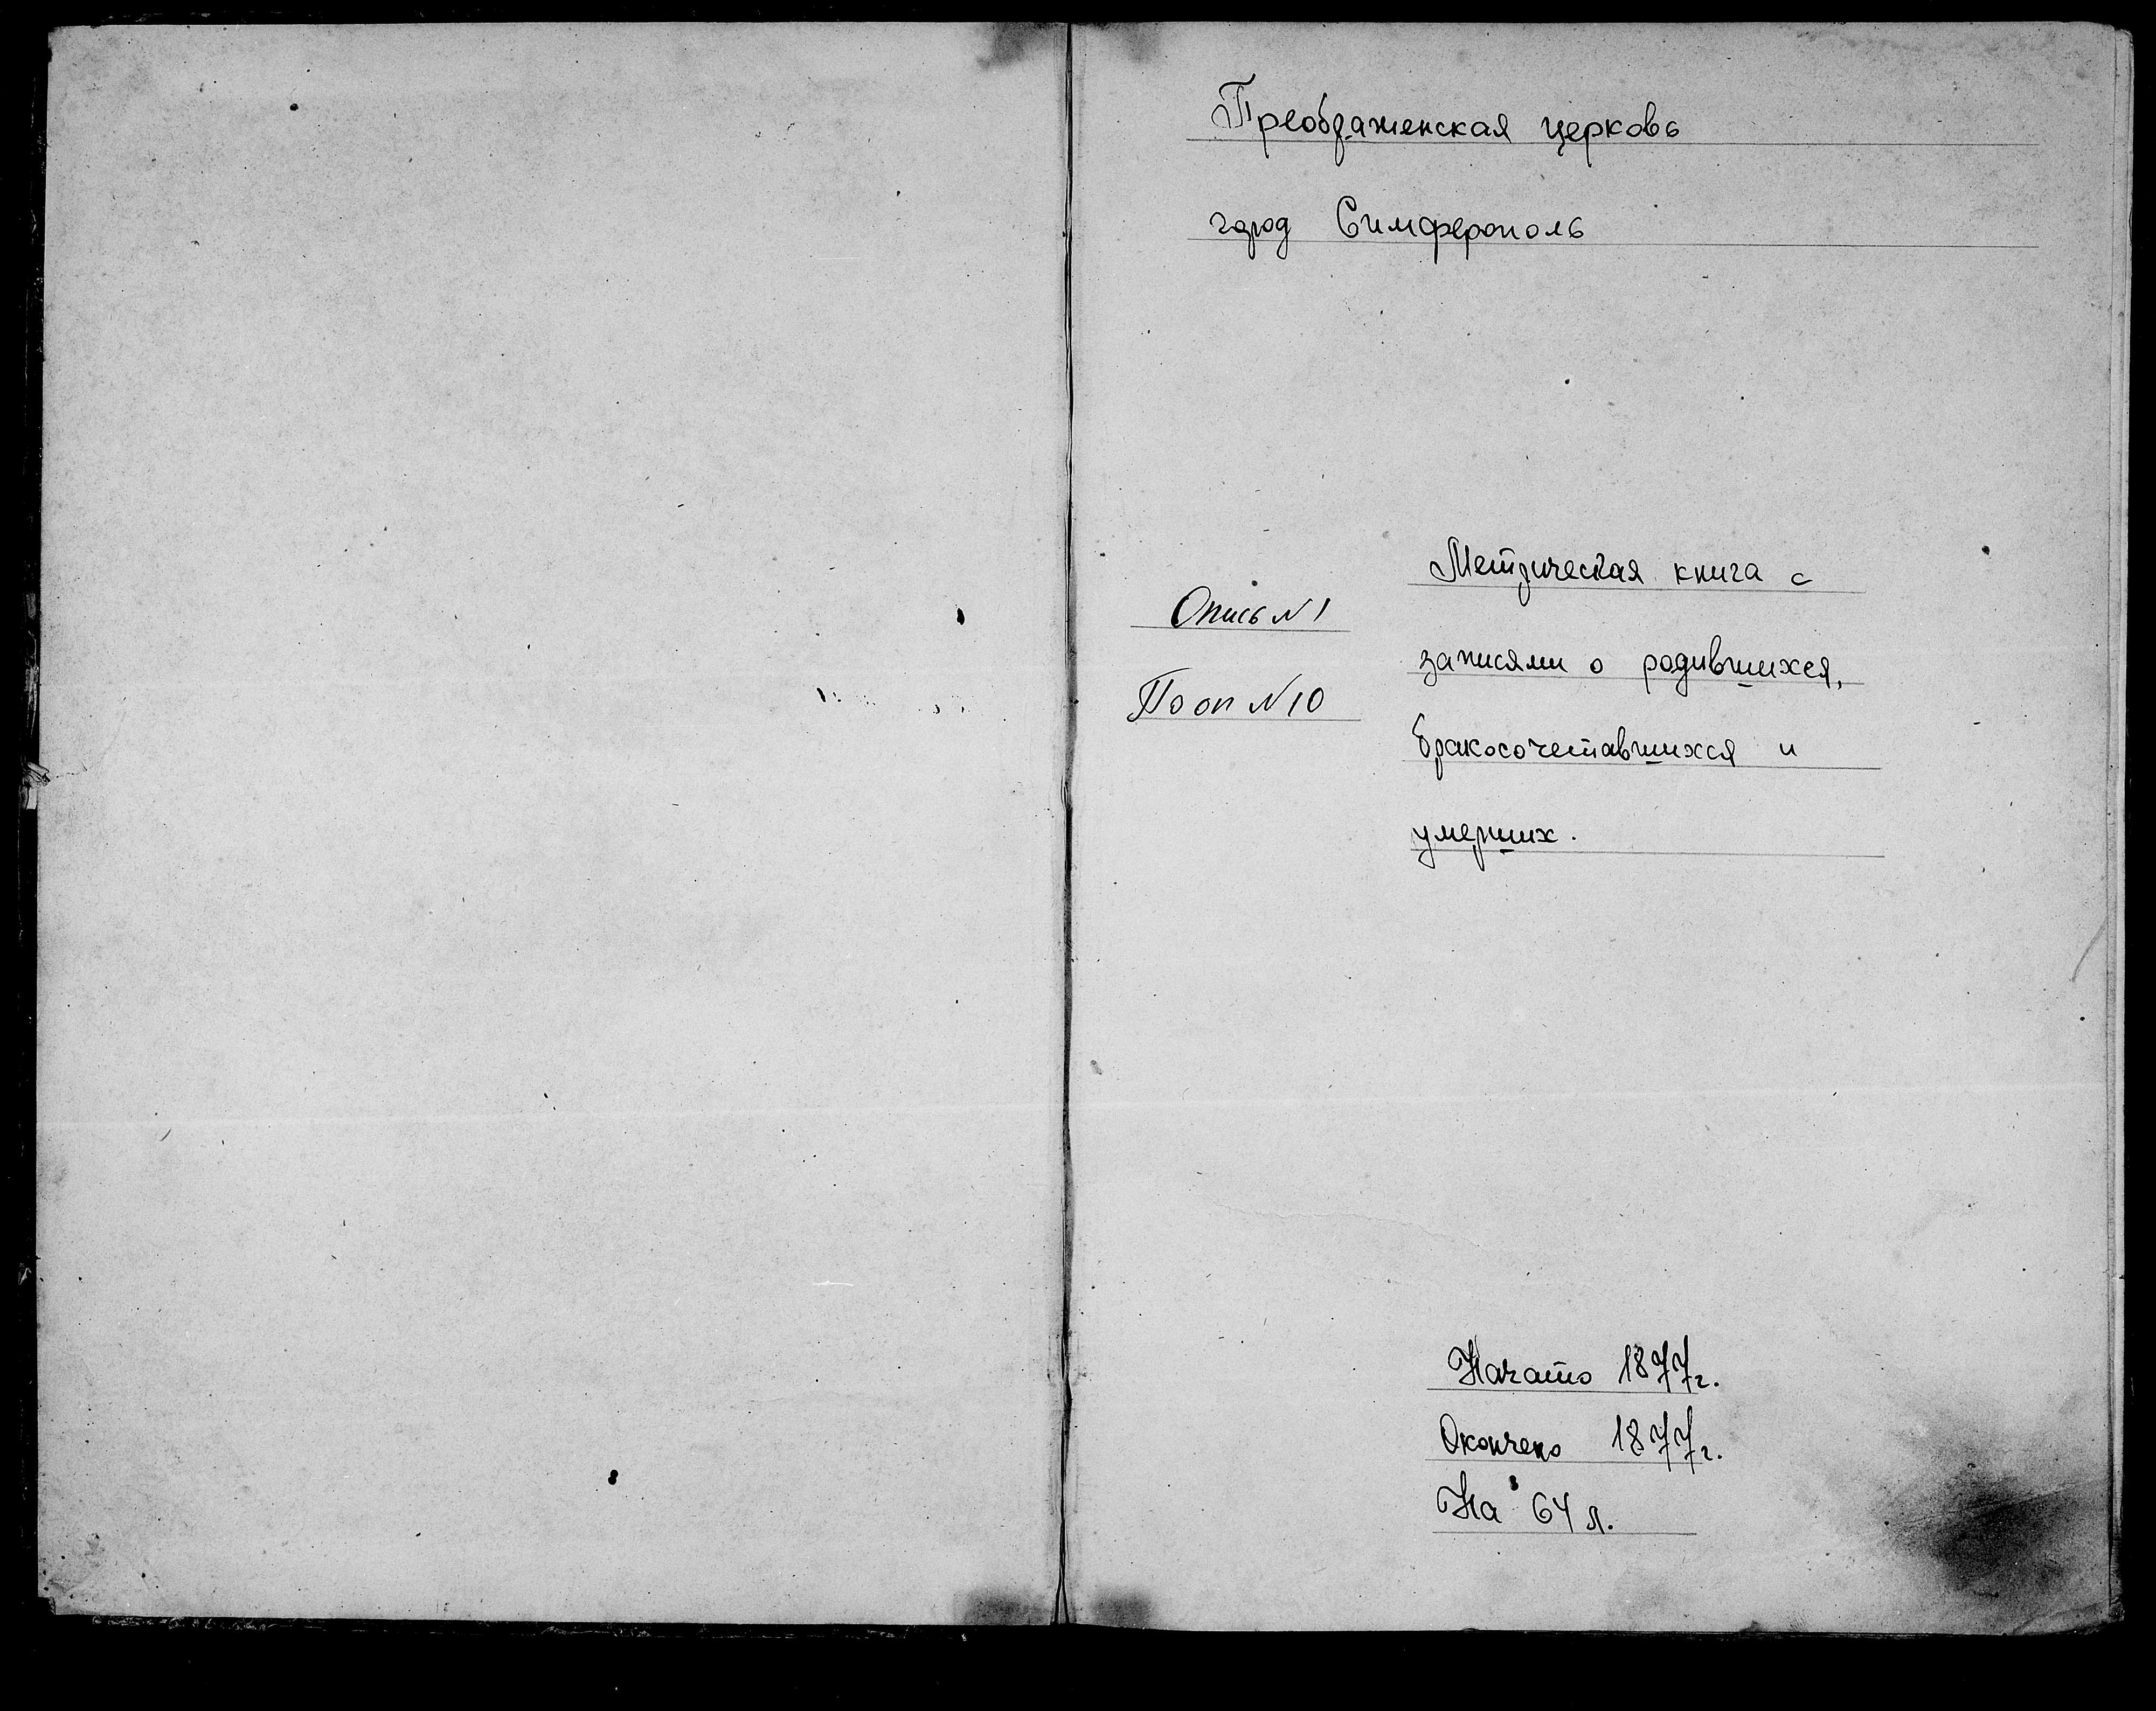 Преображенская церковь
город Симферополь
Метрическая книга с
Опись №1
записями о родившихся,
По оп №10
бракосочетавшихся и
умерших.
Начато 1877г.
Окончено 1877г.
На 64 л.